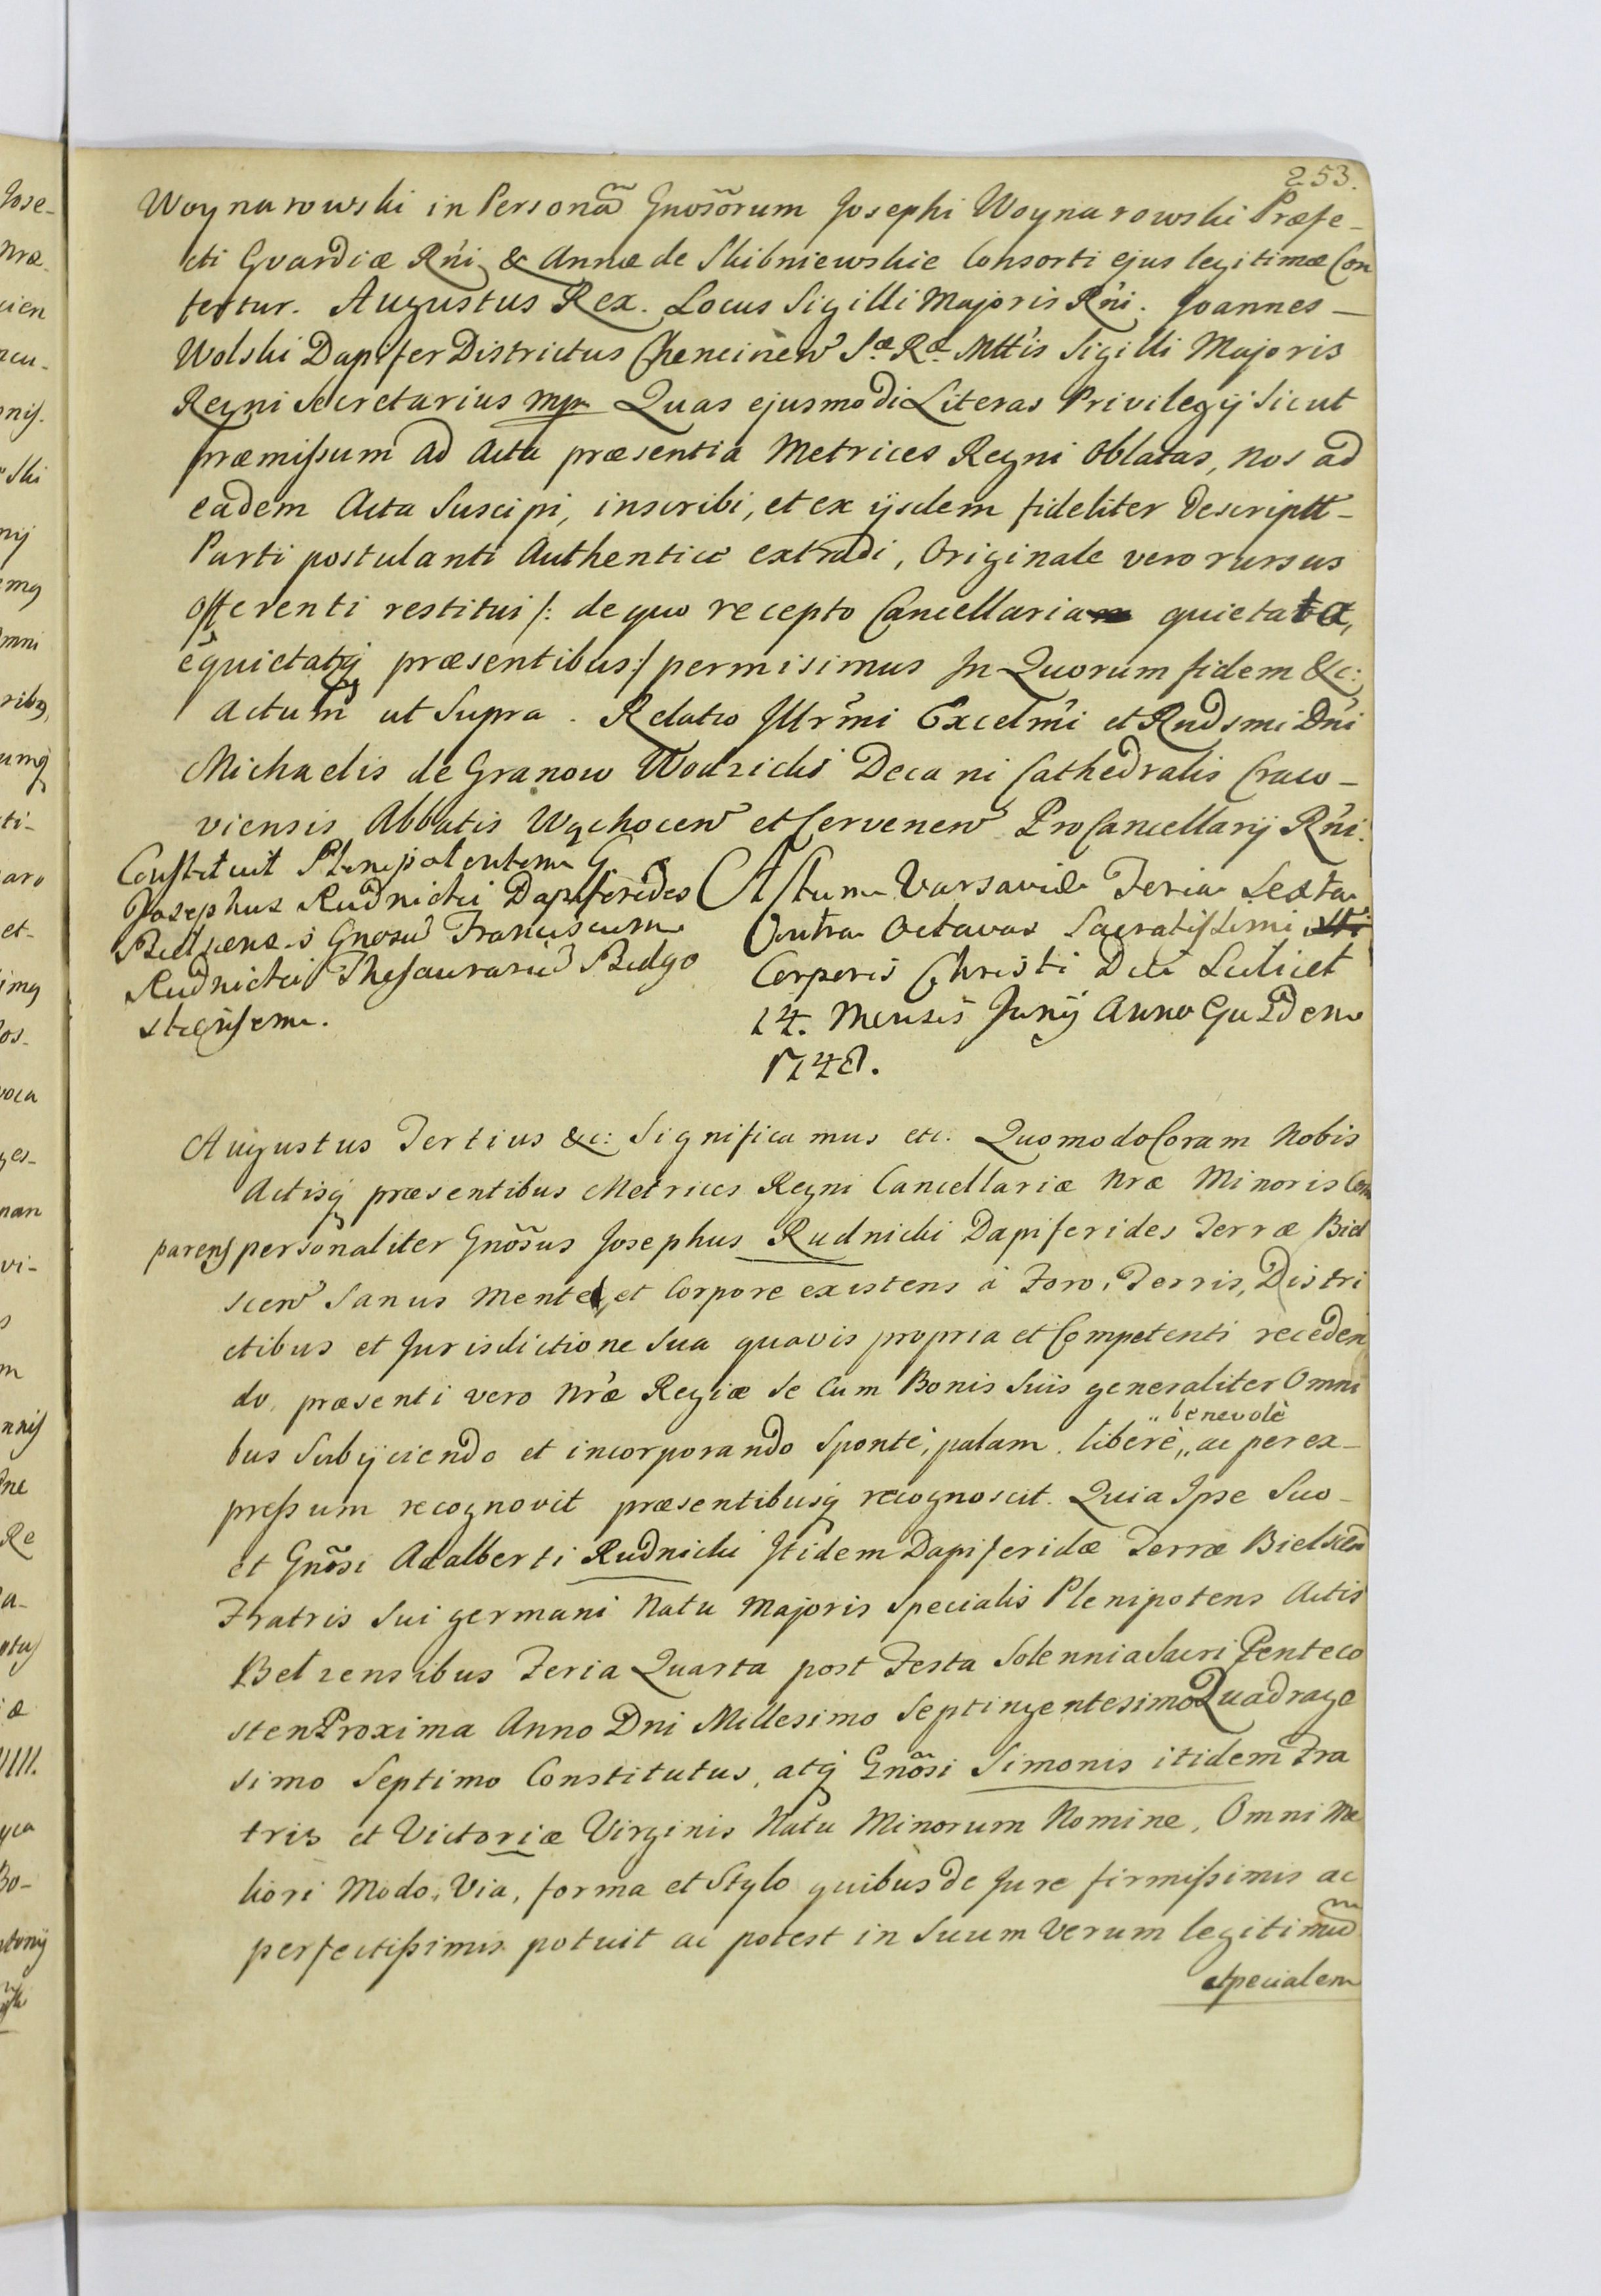 253.
Woynarowski in Persona Gnosorum Josephi Woynarowski Præfe-
cti Gvardiæ Rni & Annæ de Skibniewskie Consorti ejus legitimæ Con
fertur. Augustus Rex. Locus Sigilli Majoris Rni. Joannes -
Wolski Dapifer Districtus Chencinen Sæ Ræ Mttis Sigilli Majoris
Regni Secretarius mp Quas ejusmodi Literas Privilegij sicut
præmissum ad Acta præsentia Metrices Regni Oblatas, nos ad
eadem Acta Suscipi, inscribi, et ex ijsdem fideliter descriptt-
Parti postulanti Authentice extradi, Originale vero rursus
offerenti restitui /: de quo recepto Cancellaria quietata,
équietatq præsentibus :/ permisimus In Quorum fidem &c:
Actum ut Supra. Relatio Illrmi Excelmi et Rndsmi Dni
Michaelis de Granow Wodzicki Decani Cathedralis Craco-
viensis Abbatis Wąchocen et Cervenen ProCancellarij Rni.
Constituit Plenipotentem G
Josephus Rudnicki Dapiferides
Bielscensis Gnosu Franciscum
Rudnicki Thesaurariu Bidgo
stiensem.
Actum Varsaviæ Feria Sexta
Intra Octavas Sacratissimi
Corporis Christi Diē Scilicet
14. Mensis Junij Anno Eodem
1748.
Augustus Tertius &c: Significamus etc. Quomodo Coram Nobis
Actisq præsentibus Metrices Regni Cancellariæ Nræ Minoris Com
parens personaliter Gnosus Josephus Rudnicki Dapiferides Terræ Biel
scen Sanus Mente et Corpore existens à Foro, Terris, Distri
ctibus et Jurisdictione Sua quavis propria et Competenti receden
do, præsenti vero Nræ Regiæ se Cum Bonis Suis generaliter Omni
bus Subijciendo et incorporando Sponte, palam, liberè, „benevolè „ ac per ex-
pressum recognovit præsentibusq recognoscit. Quia Ipse Suo-
et Gnosi Adalberti Rudnicki Itidem Dapiferidæ Terræ Bielscen
Fratris Sui germani Natu Majoris Specialis Plenipotens Actis
Belzensibus Feria Quarta post Festa Solennia Sacri Penteco
sten Proxima Anno Dni Millesimo Septingentesimo Quadrage
simo Septimo Constitutus, atq Gnosi Simonis itidem Fra
tris et Victoriæ Virginis Natu Minorum Nomine, Omni Me
liori Modo, Via, forma et Stylo quibus de Jure firmissimis ac
perfectissimis potuit ac potest in Suum Verum legitimu
specialem